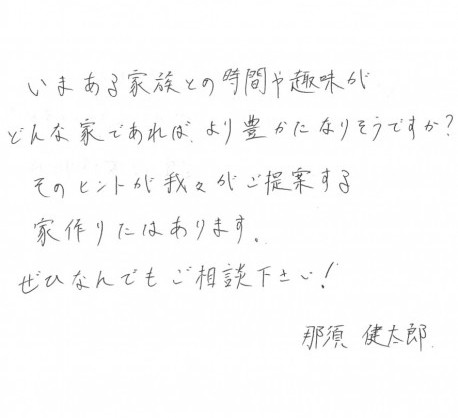 いまある家族との時間や趣味が
どんな家であれば、より豊かになりそうですか?
そのヒントが我々がご提案する
家作りにはあります。
ぜひなんでもご相談下さい!
那須 健太郎